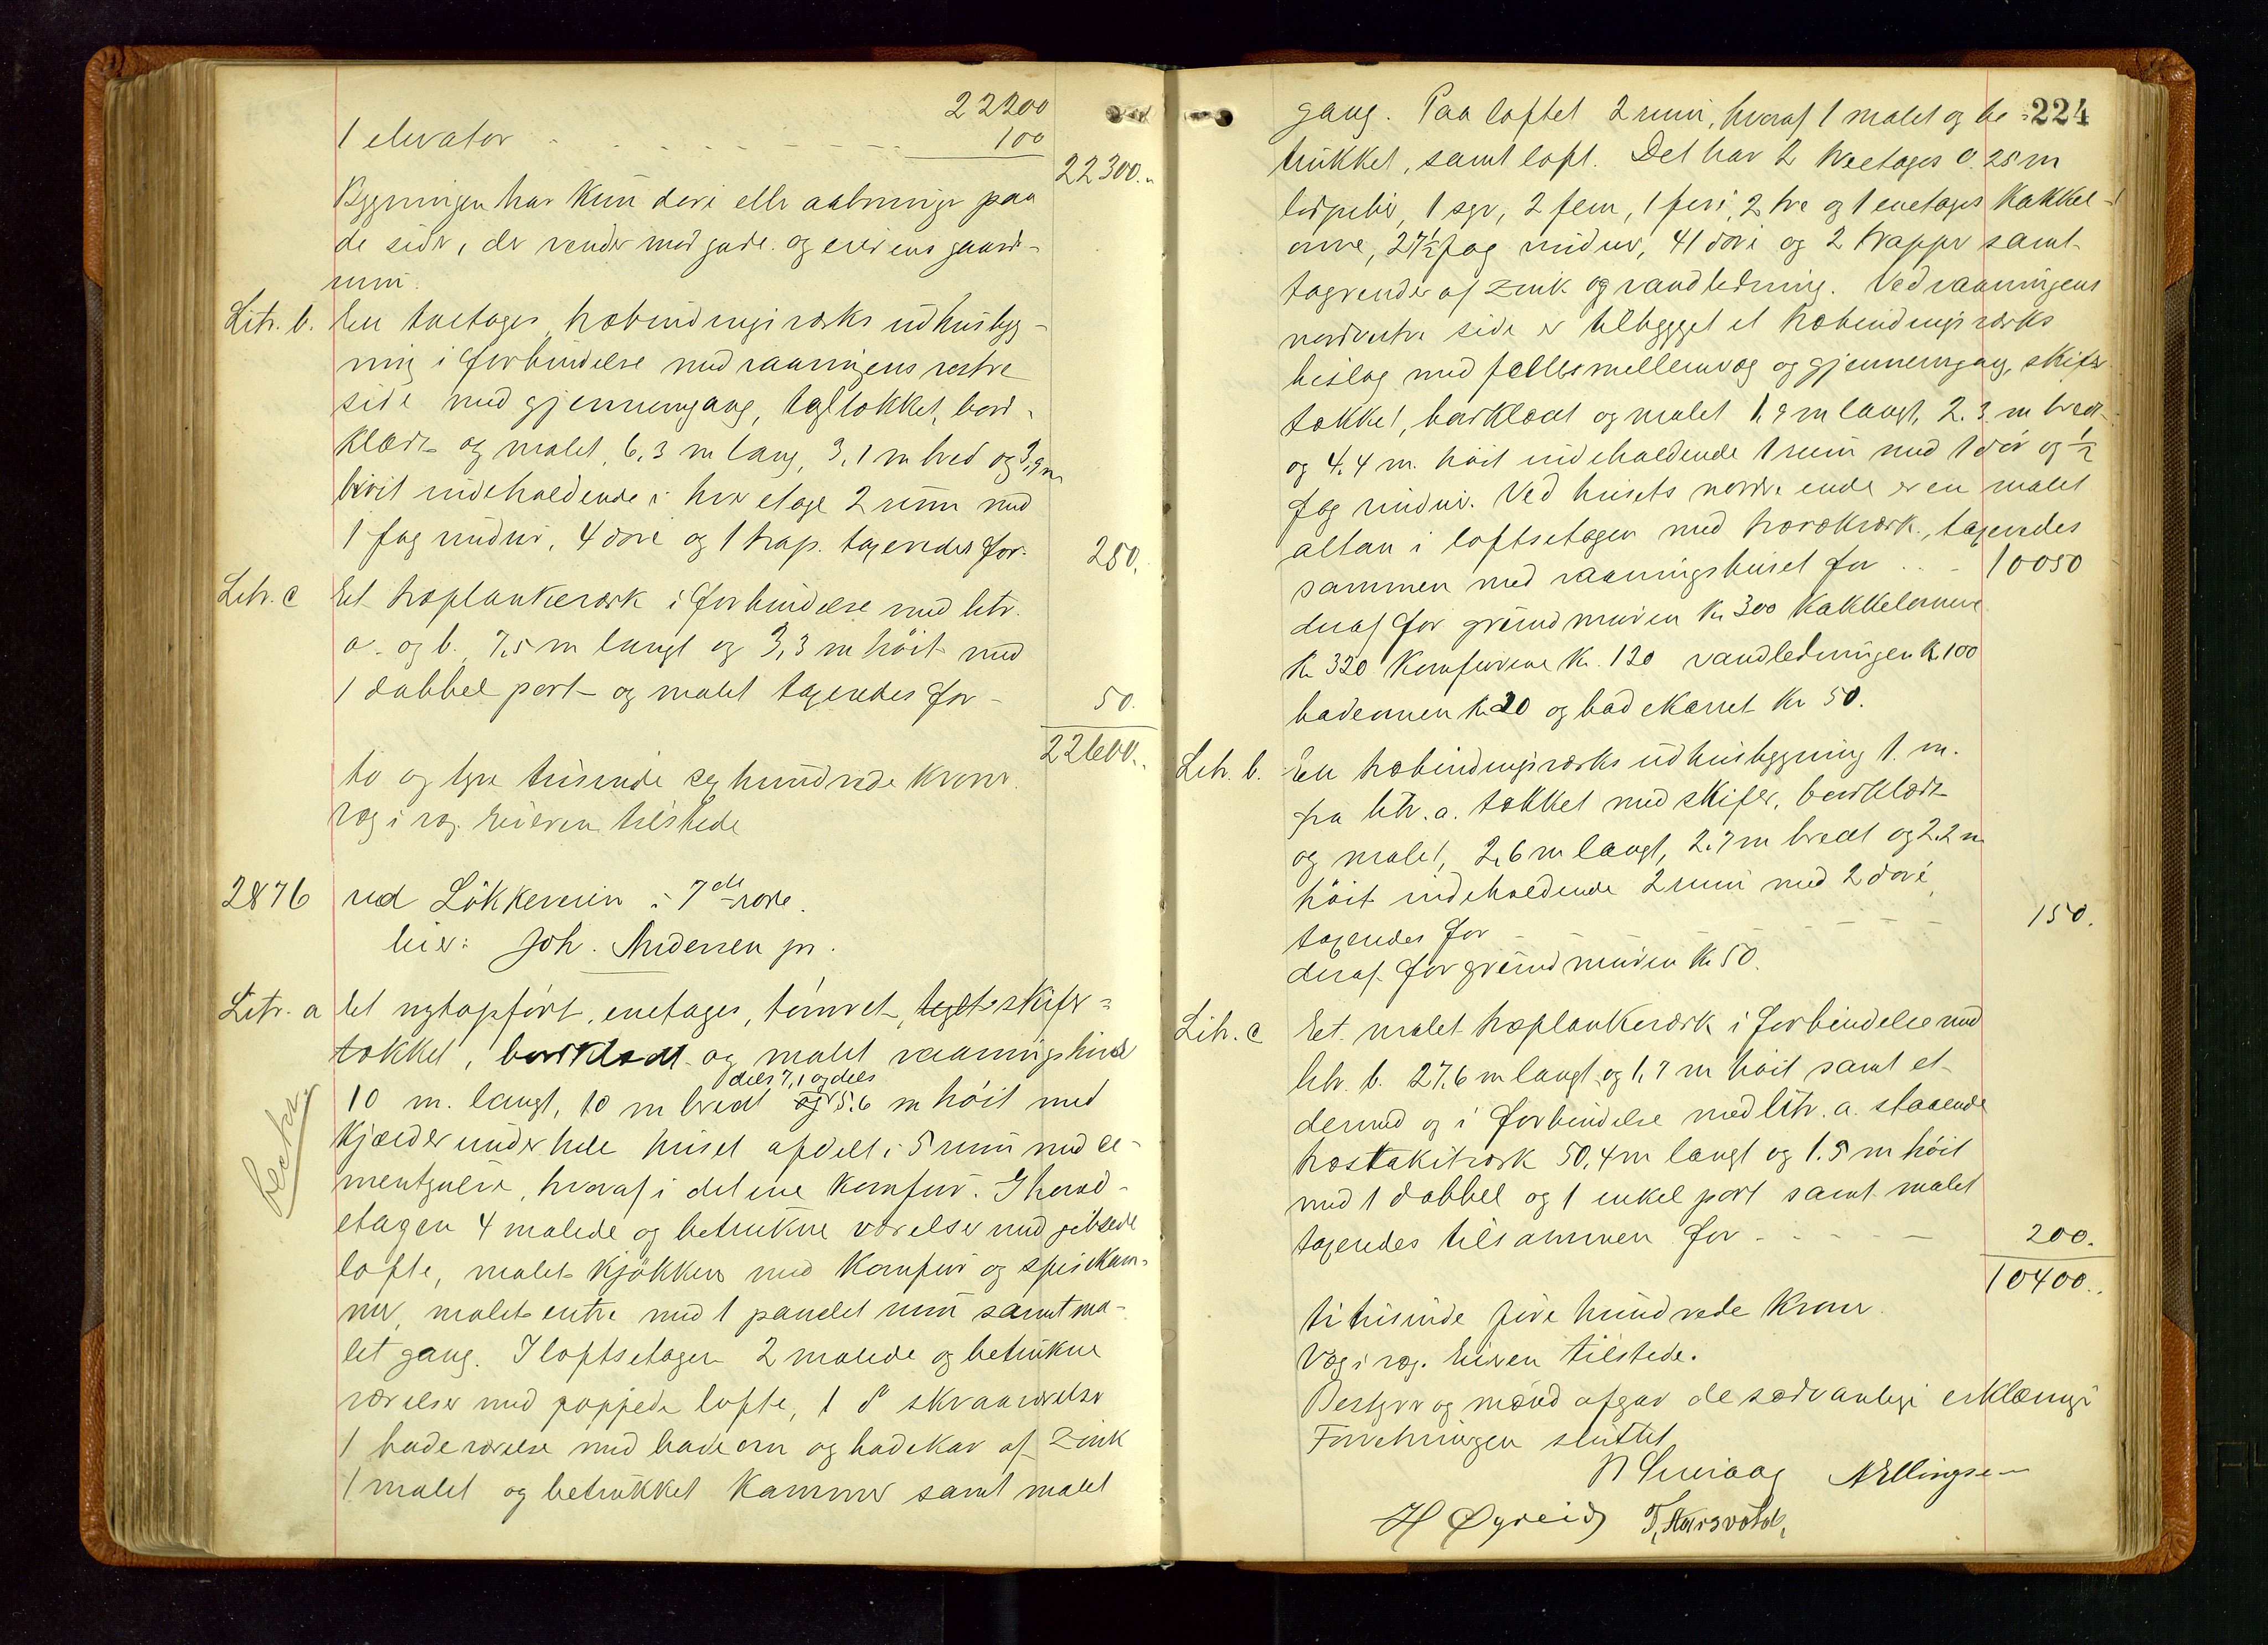 22200
1 elevator - - - - - - - 100
22300.-
Bygningen har kun døre eller aabninger paa
de sider, der vender mod gade og eierens gaards-
rum.
Litr. b. En toetages træbindingsværks udhusbyg-
ning i forbindelse med vaaningens vestre
side med gjennemgang, tegltækket, bord-
klædt og malet, 6,3 m lang, 3,1 m bred og 3,9 m
høit indeholdende i hver etage 2 rum med
1 fag vinduer, 4 døre og 1 trap. taxeredes for. 250.
Litr. c Et træplankeværk i forbindelse med litr.
a. og b. 7,5 m langt og 3,3 m høit med
1 dobbel port og malet taxeredes for - 50.
22600..
to og tyve tusinde sex hundrede kroner.
Væg i væg. Eieren tilstede
2876 ved Løkkeveien i 7de rode.
Eier: Joh. Andersen jr.
Litr. a Et nytopført, enetages, tømret, teglt skifer-
tækket, bordklædt og malet vaaningshus
dels 7,1 og dels
10 m. langt, 10 m bredt og 5.6 m høit med
kjælder under hele huset afdelt i 5 rum med ce-
mentgulve, hvoraf i det ene komfur. I hoved-
etagen 4 malede og betrukne værelser med gibsede
lofte, malet kjøkken med komfur og spiskam-
mer, malet entre med 1 panelet rum samt ma-
let gang. I loftsetagen 2 malede og betrukne
værelser med pappede lofte, 1 do skraaværelse
1 badeværelse med badeovn og badekar af zink
1 malet og betrukket kammer samt malet
224
gang. Paa loftet 2 rum, hvoraf 1 malet og be-
trukket, samt loft. Det har 2 treetages 0.25 m
ledpiber, 1 sex, 2 fem, 1 fire, 2 tre og 1 enetages kakkel-
ovne, 27½ fag vinduer, 41 døre og 2 trapper samt
tagrender af zink og vandledning. Ved vaaningens
nordvestre side er tilbygget et træbindingsværks
bislag med fælles mellemvæg og gjennemgang, skifer-
tækket, bordklædt og malet 1,9 m langt, 2.3 m bredt
og 4.4 m. høit indeholdende 1 rum med 1 dør og ½
fag vinduer. Ved husets nordre ende er en malet
altan i loftsetagen med træværk, taxeredes
sammen med vaaningshuset for . . - 10050
deraf for grundmuren Kr 300 kakkelovnene
Kr 320 Komfurene Kr. 120 vandledningen Kr 100
badeovnen Kr 20 og badekarret Kr 50.
Litr. b. En træbindingsværks udhusbygning 1. m.
fra litr. a. tækket med skifer, bordklædt
og malet, 2,6 m langt, 2.7 m bredt og 2.2 m
høit indeholdende 2 rum med 2 døre,
taxeredes for - - - - - - 150.
deraf for grundmuren Kr 50.
Litr. c Et malet træplankeværk i forbindelse med
litr. b. 27,6 m langt og 1,7 m høit samt et
dermed og i forbindelse med litr. a. staaende
træstakitværk 50,4 m langt og 1.5 m høit
med 1 dobbel og 1 enkel port samt malet
taxeredes tilsammen for - - - - - 200.
10400..
ti tusinde fire hundrede kroner.
Væg i væg. Eieren tilstede.
Bestyrer og mænd afgav de sædvanlige erklæringer
Forretningen sluttet
N Ellingsen
H Øgreid